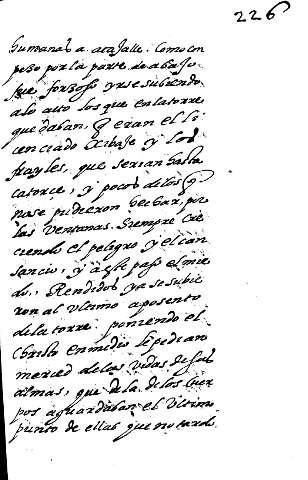 226
humanas a atajalle. Como en
pezo por la parte de abajo
fue forzoso yrse subiendo
a lo alto los que en la torre
quedaban, q̃ eran el li
cenciado Xibaje y los
frayles, que serian hasta
catorce, y pocos de los q̃
no se pudieron hechar por
las ventanas. Siempre cre
ciendo el peligro y el can
sancio, y a este paso el mie
do, Rendidos ya se subie
ron al ultimo aposento
de la torre poniendo el
Christo en medio le pedian
merced de las vidas de sus
almas, que a la de los cuer
pos aguardaban el ultimo
punto de ellas que no tardo